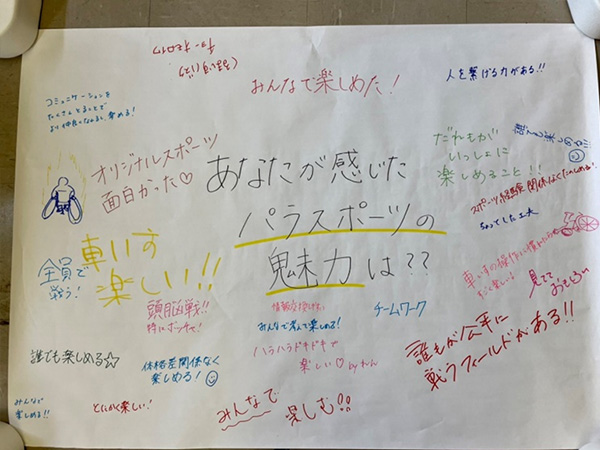 みんなで楽しめた!
人を繋げる力がある!!
コミュニケーションを
たくさんとることで
より仲良くなれるし楽める!
オリジナルスポーツ
面白かった♡
あなたが感じた
パラスポーツの
魅力は??
だれもが
いっしょに
楽しめること!!
スポーツ経験関係なくたのしめる!
ちょっとした工夫
車いす
楽しい!!
全員で
戦う!
頭脳戦!!
特にボッチャ!
みんなで考えて楽しめる!
チームワーク
ハラハラドキドキで
楽しい♡
見てて
おもしろい
誰もが公平に
戦うフィールドがある!!
誰でも楽しめる☆
体格差関係なく
楽しめる!
みんなで
楽しめる!!
とにかく楽しい!
みんなで
楽しむ!!